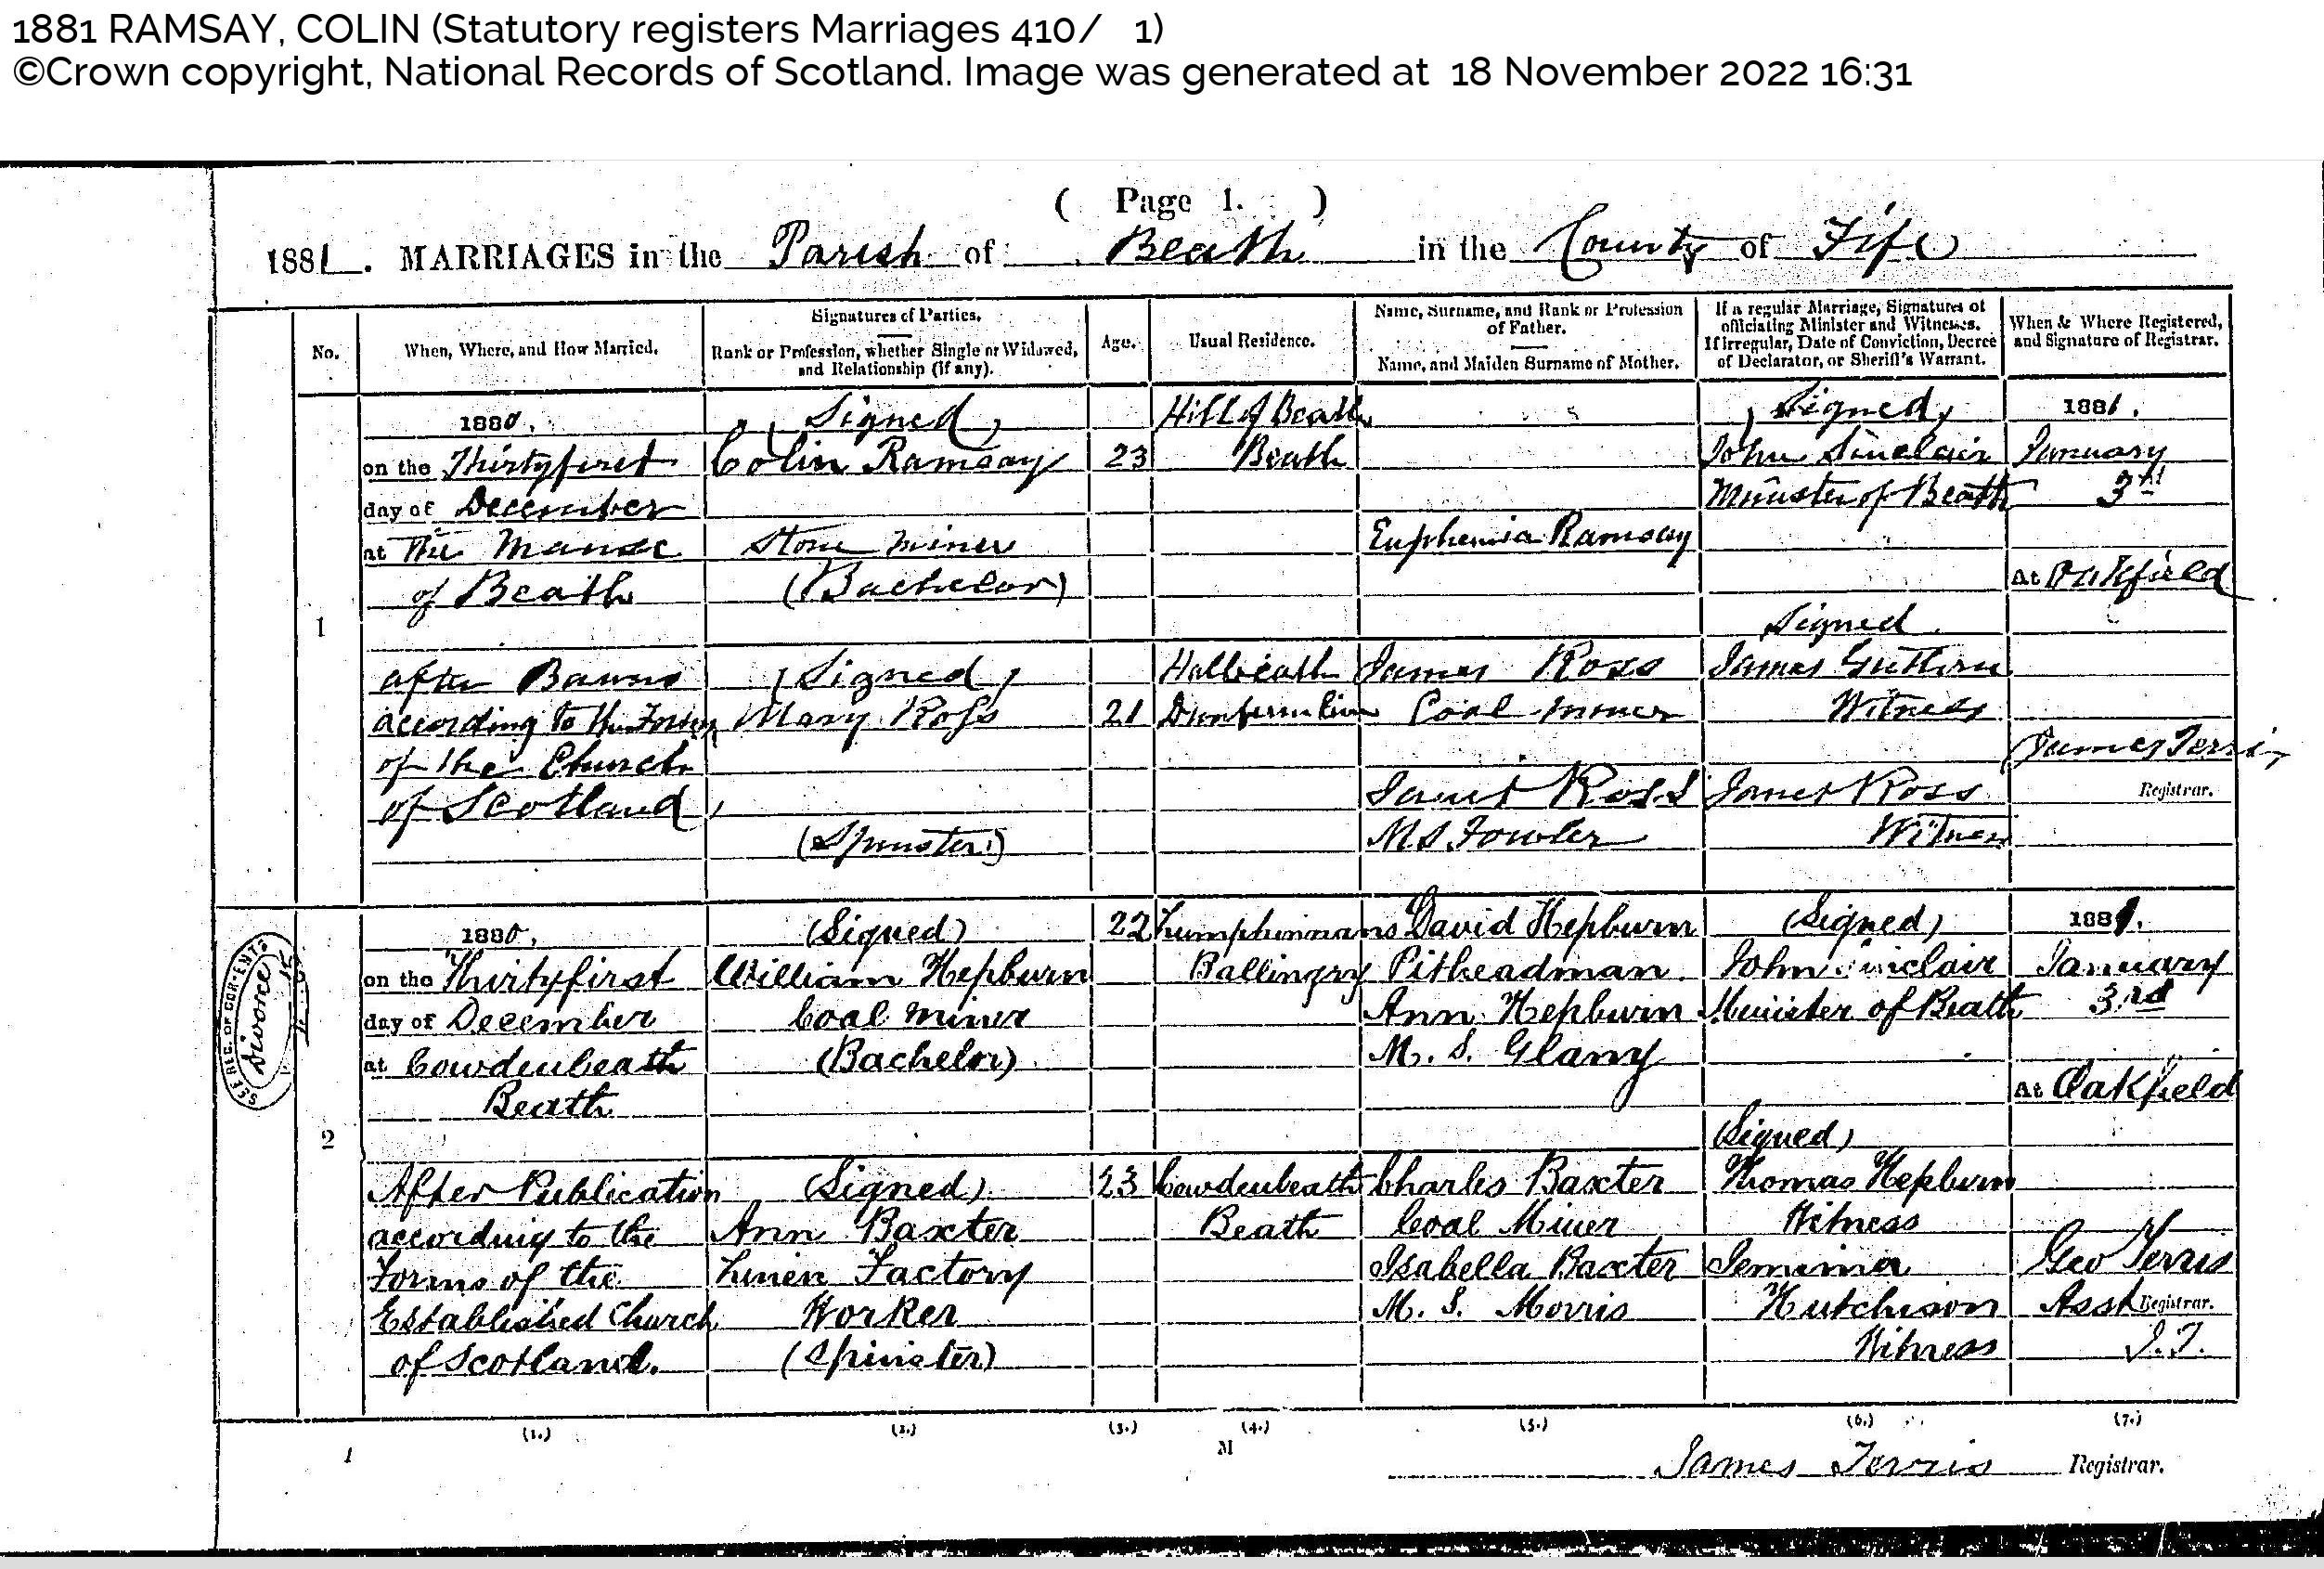 1881 RAMSAY, COLIN (Statutory registers Marriages 410/ 1)
©Crown copyright, National Records of Scotland. Image was generated at 18 November 2022 16:31
( Page 1. )
1881. MARRIAGES in the Parish of Beath in the County of Fife
No.
When, Where, and How Married.
Signatures of Parties.
Rank or Profession, whether Single or Widowed,
and Relationship (if any).
Age.
Usual Residence.
Name, Surname, and Rank or Profession
of Father.
Name, and Maiden Surname of Mother.
If a regular Marriage, Signatures of
officiating Minister and Witnesses.
If irregular, Date of Conviction, Decree
of Declarator, or Sheriff's Warrant.
When & Where Registered,
and Signature of Registrar.
1
1880,
on the Thirtyfirst
day of December
at The Manse
of Beath
after Banns
according to the Forms
of the Church
of Scotland
(Signed)
Colin Ramsay
Stone miner
(Bachelor)
(Signed)
Mary Ross
(Spinster)
23
21
Hill of Beath
Beath
Halbeath
Dunfermline
Euphemia Ramsay
James Ross
Coal miner
Janet Ross
M.S. Fowler
(Signed)
John Sinclair
Minister of Beath
Signed
James Guthrie
Witness
Janet Ross
Witness
1881.
January
3rd
At Oakfield
James Terris
Registrar.
2
SEE REC. OF COR. ENTS
Divorce
1880,
on the Thirtyfirst
day of December
at Cowdenbeath
Beath
After Publication
according to the
Forms of the
Established Church
of Scotland.
(Signed)
William Hepburn
Coal Miner
(Bachelor)
(Signed)
Ann Baxter
Linen Factory
Worker
(Spinster)
22
23
Lumphinnans
Ballingry
Cowdenbeath
Beath
David Hepburn
Pitheadman
Ann Hepburn
M. S. Glany
Charles Baxter
Coal Miner
Isabella Baxter
M. S. Morris
(Signed)
John Sinclair
Minister of Beath
(Signed)
Thomas Hepburn
Witness
Jemima
Hutchison
Witness
1881.
January
3rd
At Oakfield
Geo Terris
Asst Registrar.
J.T.
(1.) (2.) (3.) (4.) (5.) (6.) (7.)
1 M
James Terris Registrar.